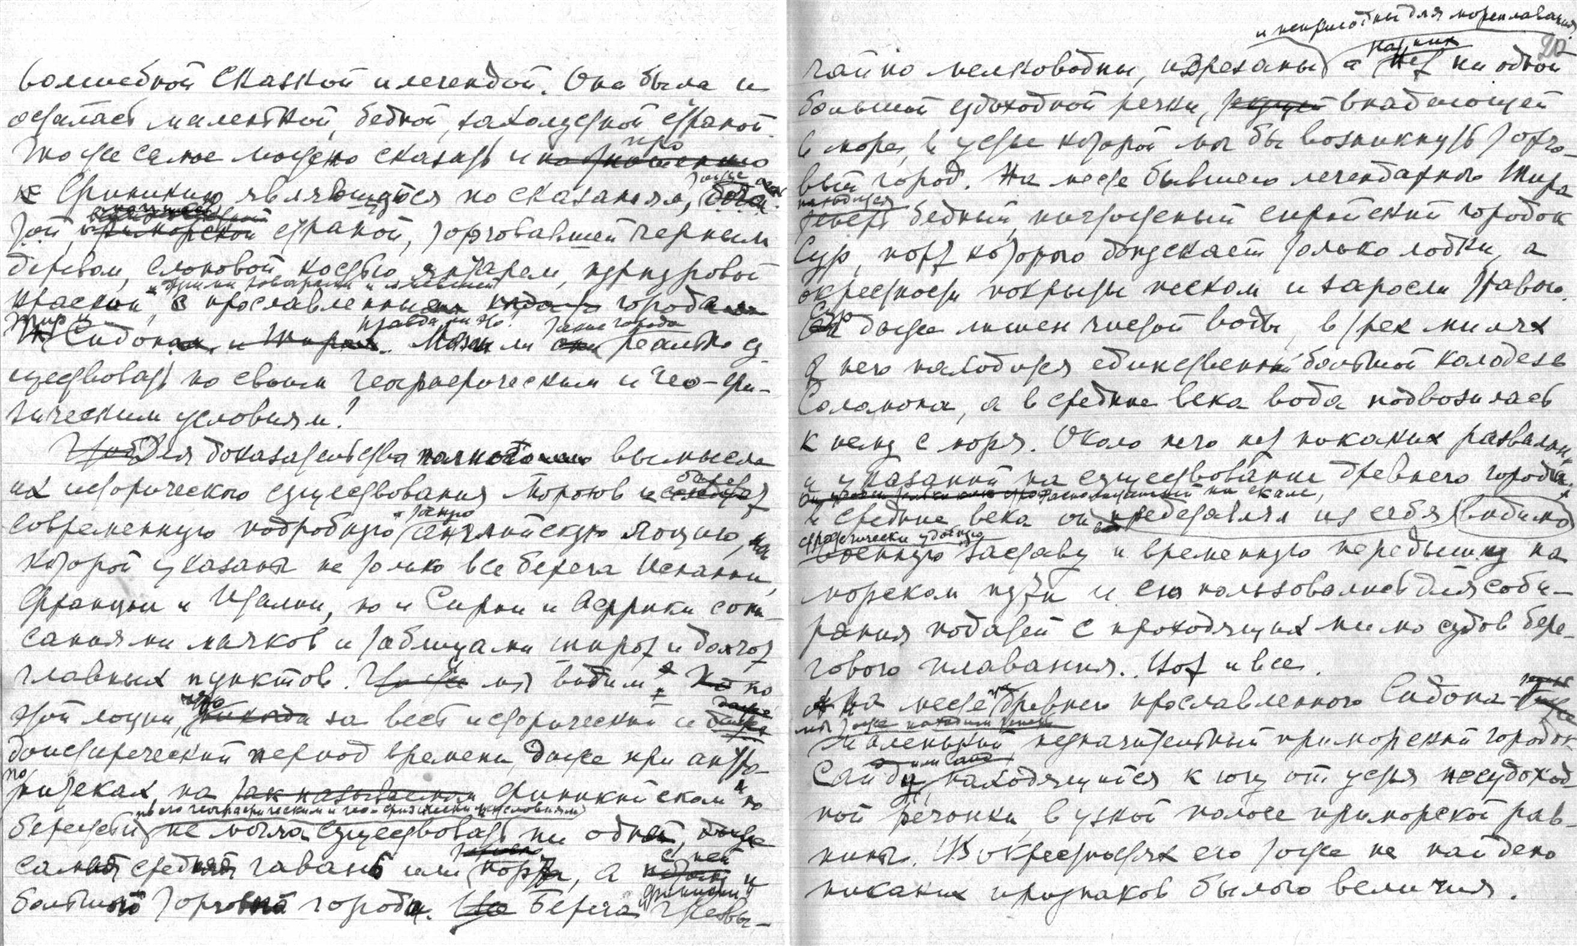 волшебной сказкой и легендой. Она была и
осталась маленькой, бедной, захолустной страной.
То же самое можно сказать и про
Финикию являющуюся по сказаниям, тоже
той страной, торговавшей черным
деревом, слоновой костью, янтарем, пурпуровой
краской, и другими товарами и славившейся
прославленными города
Тир и Сидон. правда ли это? Могли ли такие города реально су-
ществовать по своим географическим и гео-фи-
зическим условиям?
Для доказательства вымысла
их исторического существования торгов и берегов
современную подробную английскую лоцию, на
которой указаны не только все берега Испании,
Франции и Италии, но и Сирии и Африки с опи-
саниями маяков и таблицами широт и долгот
главных пунктов. мы видим? по
этой лоции, что за весь исторический и даже
доисторический период времени даже при
на финикийском по-
бережьи по его географическим и гео-физическим условиям
не могла существовать ни одной, даже
самой средней гавани или порта, а с ней и
большого торгового города. Берега Финикии чрезвы-
и непригодны для мореплавания
20
чайно мелководны, изрезаны а на них нет ни одной
большой судоходной речки, впадающей
в море, в устье которой мог бы возникнуть торго-
вый город. На месте бывшего легендарного Тира
находится бедный, ничтожный сирийский городок
Сур, порт которого допускает только лодки, а
окрестности покрыты песком и заросли травою.
Сур даже лишен чистой воды, в трех милях
от него находится единственный большой колодезь
Соломона, а в средние века вода подвозилась
к нему с моря. Около него нет никаких развалин
и указаний на существование древнего города.
В средние века он представлял из себя (видимо)
стратегически удобную
военную заставу и временную передышку на
морском пути и ею пользовались для соби-
рания податей с проходящих мимо судов бере-
гового плавания. Вот и все.
На месте древнего прославленного Сидона
мы тоже находим
маленький незначительный приморский городок
Сайду, или Саид находящийся к югу от устья несудоход-
ной речонки, в узкой полосе приморской рав-
нины. В окрестностях его тоже не найдено
никаких признаков былого величия.